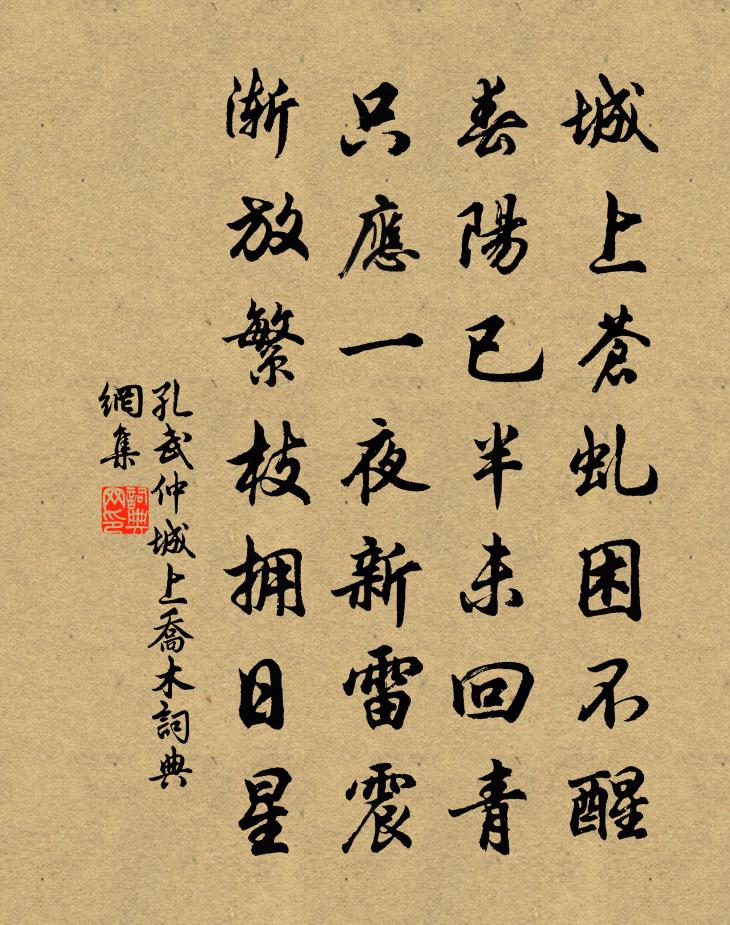 城上蒼虬困不醒
春陽已半未回青
只應一夜新雷震
漸放繁枝拥日星
孔武仲城上喬木詞典
網集
詞典
网印